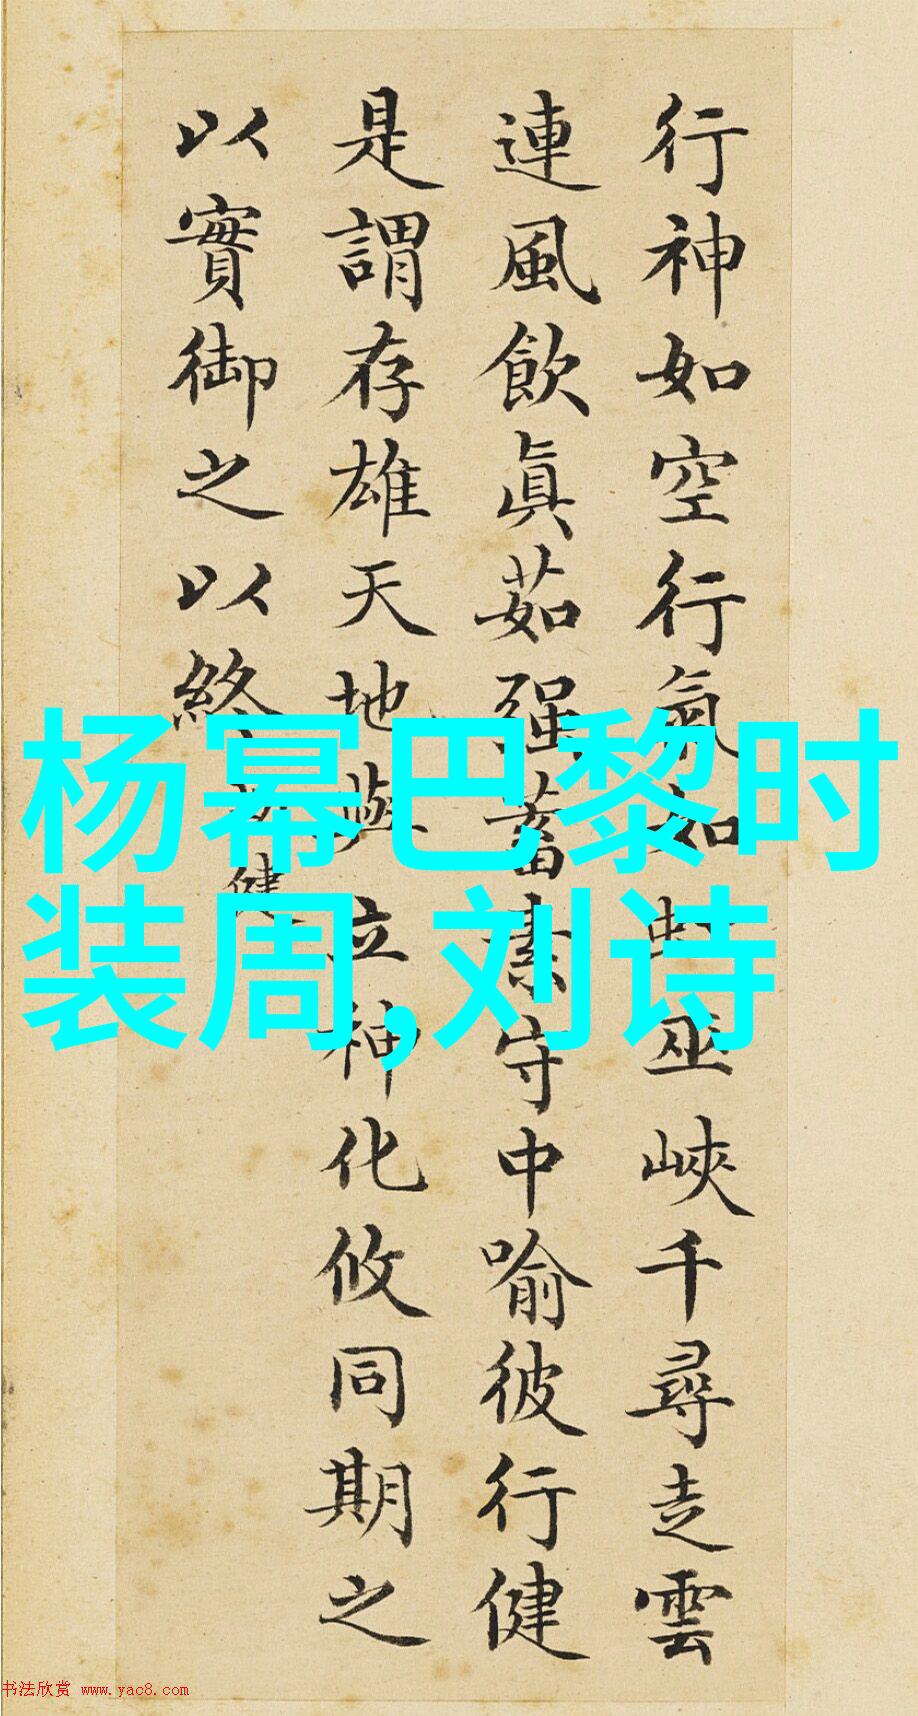 行神如空行氣如虹巫峽千尋走雲
連風飲眞茹强蓄素守中喻彼行健
是謂存雄天地與立神化攸同期之
以實御之以終
健
杨幂巴黎时
装周,刘诗
书法欣赏 www.yac8.com